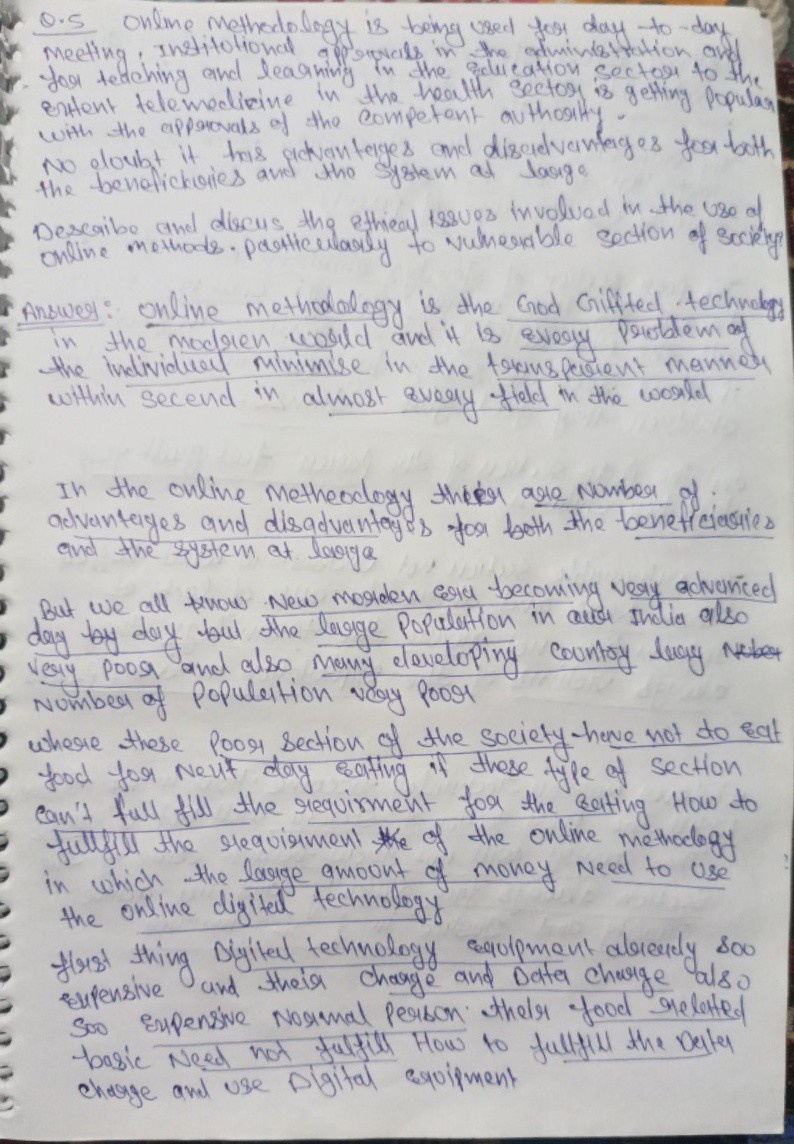 Q.5 Online methodology is being used for day-to-day
meeting, Institutional approvals in the administration and
for teaching and learning in the Education sector to the
extent telemedicine in the health sector is getting popular
with the approvals of the competent authority.
No doubt it has advantages and disadvantages for both
the beneficiaries and the system at large
Describe and discus the ethical issues involved in the use of
online methods. particularly to vulnerable section of society?
Answer: Online methodology is the God Giffted technology
in the modren world and it is every Problem of
the individual minimise in the transparent manner
within secend in almost every field in the world
In the online metheodlogy their are Number of
advantages and disadvantages for both the beneficiaries
and the system at large
But we all know New morden era becoming very advanced
day by day but the large Population in our India also
very poor and also many developing country
Number of Population very Poor
where these poor section of the society have not to Eat
food for Next day Eating if these type of section
can't full fill the requirment for the Eating How to
fullfill the requirment of the online methodlogy
in which the large amount of money Need to use
the online digital technology
first thing Digital technology Equipment already soo
expensive and their charge and Data charge also
soo Expensive Normal Person their food related
basic Need not fulfill How to fullfill the Data
charge and use Digital Equipment